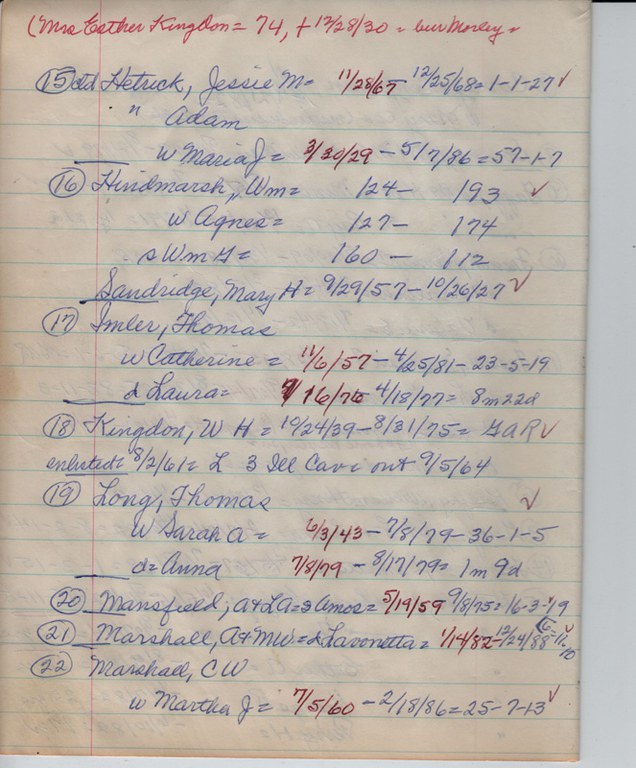 (Mrs Esther Kingdon = 74, + 12/28/30 = bur Morley =
15 Hetrick, Jessie M = 11/28/67 12/25/68 = 1-1-27 ✓
" Adam
w Maria J = 3/30/29 - 5/7/86 = 57-1-7
16 Hindmarsh, Wm = 124 - 193 ✓
w Agnes = 127 - 174
s Wm H = 160 - 112
Sandridge, Mary H = 9/29/57 - 10/26/27 ✓
17 Imler, Thomas
w Catherine = 11/6/57 - 4/25/81 - 23-5-19
d Laura = 16/76 4/18/77 = 8m 22d
18 Kingdon, W H = 10/24/39 - 8/31/75 = GAR ✓
enlisted = 8/2/61 = L 3 Ill Cav = out 9/5/64
19 Long, Thomas ✓
w Sarah A = 6/3/43 - 7/8/79 - 36-1-5
d = Anna 7/8/79 - 8/17/79 = 1m 9d
20 Mansfield, A + L A = s Amos = 5/19/59 9/8/75 = 16-3-19
21 Marshall, A + M W = d Lavonetta = 1/14/82 - 12/24/88 = 6-11-10 ✓
22 Marshall, C W
w Martha J = 7/5/60 - 2/18/86 = 25-7-13 ✓